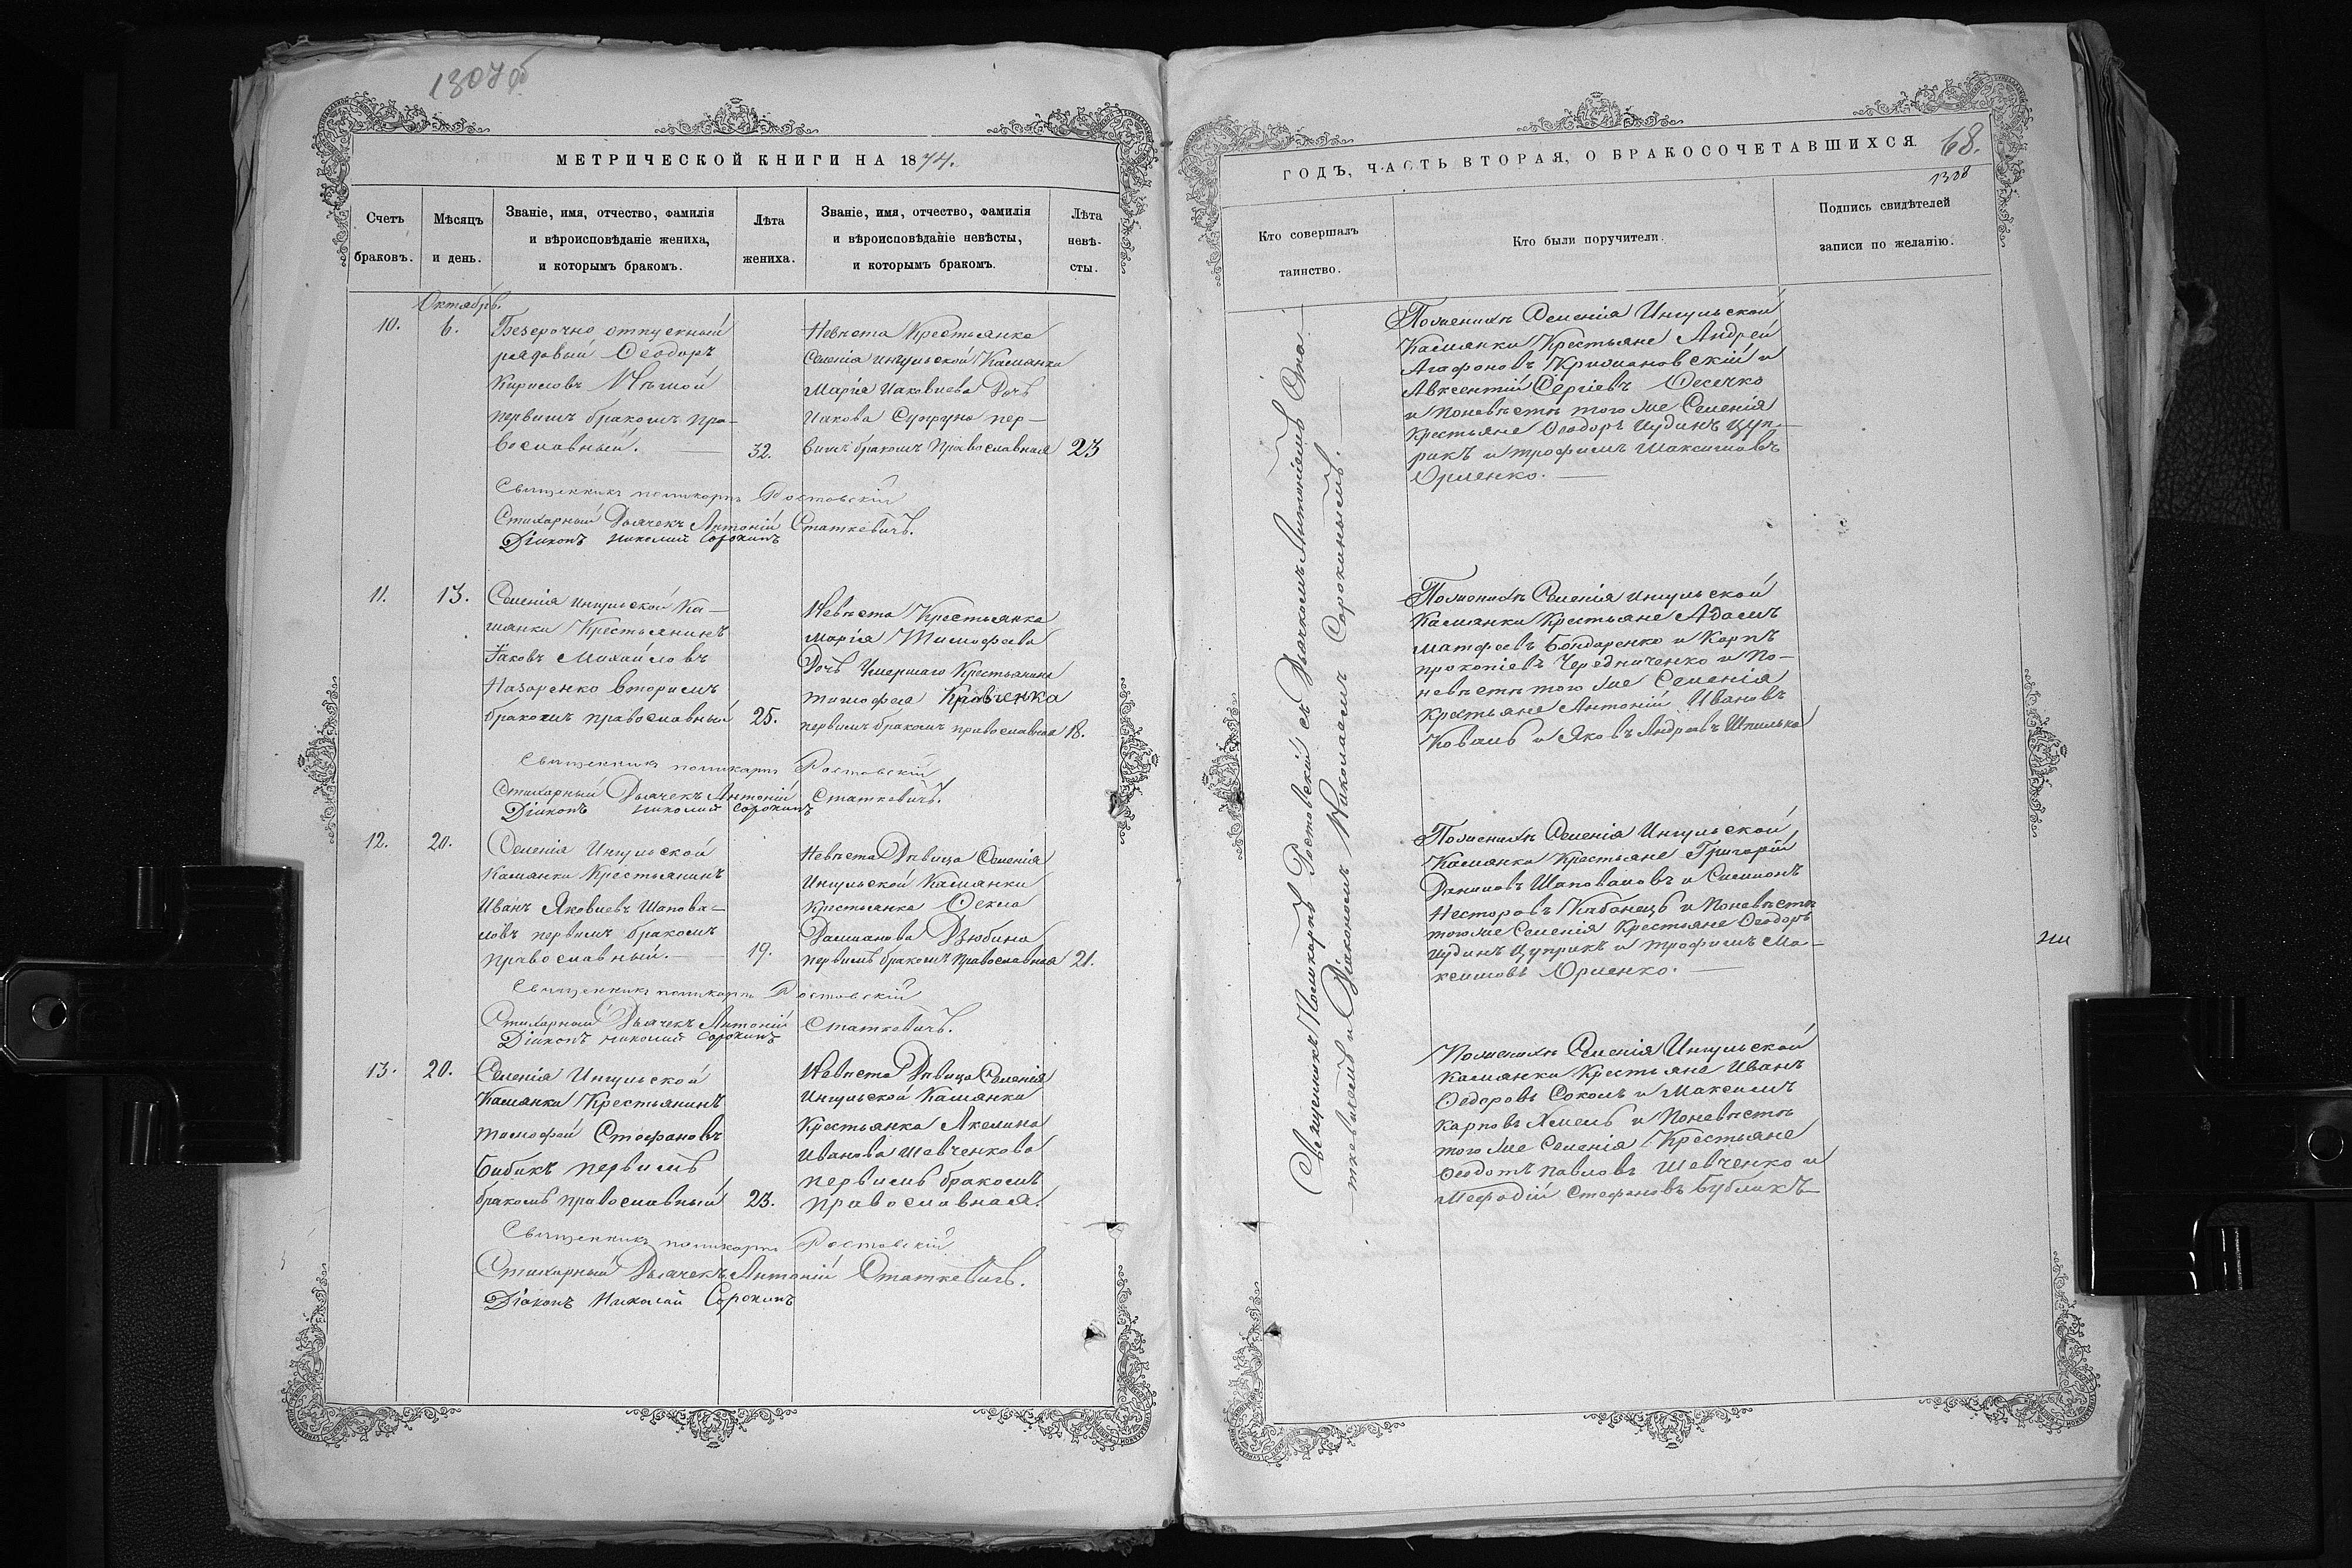 1307об
МЕТРИЧЕСКОЙ КНИГИ НА 1874.
Счетъ браковъ.
Мѣсяцъ и день.
Званіе, имя, отчество, фамилія и вѣроисповѣданіе жениха, и которымъ бракомъ.
Лѣта жениха.
Званіе, имя, отчество, фамилія и вѣроисповѣданіе невѣсты, и которымъ бракомъ.
Лѣта невѣ-сты.
Октябрь.
10.
6.
Безсрочно отпускный
рядовый Ѳеодоръ
Кириловъ Нѣмой
первымъ бракомъ пра-
вославный.
32.
Невѣста Крестьянка
Селенія Ингульской Камянки
Марія Иаковлева Дочь
Иакова Супруна пер-
вымъ бракомъ Православная
23
Священникъ Поликарпъ Ростовскій
Стихарный Дьячекъ Антоній Статкевичъ.
Діаконъ Николай Сорокинъ
11.
13.
Селенія Ингульской Ка-
мянки Крестьянинъ
Іаковъ Михайловъ
Назаренко вторымъ
бракомъ православный
25.
Невѣста Крестьянка
Марія Тимофеева
Дочь Умершаго Крестьянина
Тимофея Кравченка
первымъ бракомъ православная
18.
Священникъ Поликарпъ Ростовскій
Стихарный Дьячекъ Антоній Статкевичъ.
Діаконъ Николай Сорокинъ
12.
20.
Селенія Ингульской
Камянки Крестьянинъ
Иванъ Яковлевъ Шапова-
ловъ первымъ бракомъ
православный.
19.
Невѣста Дѣвица Селенія
Ингульской Камянки
Крестьянка Ѳекла
Даміанова Дзюбина
первымъ бракомъ Православная
21.
Священникъ Поликарпъ Ростовскій
Стихарный Дьячекъ Антоній Статкевичъ.
Діаконъ Николай Сорокинъ
13.
20.
Селенія Ингульской
Камянки Крестьянинъ
Тимофей Стефановъ
Бибикъ первымъ
бракомъ православный
23.
Невѣста Дѣвица Селенія
Ингульской Камянки
Крестьянка Акелина
Иванова Шевченкова
первымъ бракомъ
православная.
Священникъ Поликарпъ Ростовскій
Стихарный Дьячекъ Антоній Статкевичъ.
Діаконъ Николай Сорокинъ
ГОДЪ, ЧАСТЬ ВТОРАЯ, О БРАКОСОЧЕТАВШИХСЯ.
68.
1308
Кто совершалъ таинство.
Кто были поручители.
Подпись свидѣтелей записи по желанію.
Священникъ Поликарпъ Ростовскій съ Дьячкомъ Антоніемъ Ста-
ткевичемъ и Діакономъ Николаемъ Сорокинымъ.
По женихѣ Селенія Ингульской
Камянки Крестьяне Андрей
Агафоновъ Крижановскій и
Авксентій Сергіевъ
и по невѣстѣ того же Селенія
Крестьяне Ѳеодоръ Иудинъ Цуп-
рикъ и Трофимъ Максимовъ
Юрченко.
По женихѣ Селенія Ингульской
Камянки Крестьяне Адамъ
Матфеевъ Бондаренко и Карпъ
Прокопіевъ Чередниченко и по-
невѣстѣ того же Селенія
Крестьяне Антоній Ивановъ
Коваль и Яковъ Андреевъ Шпилька
По женихѣ Селенія Ингульской
Камянки Крестьяне Григорій
Даниловъ Шаповаловъ и Симеонъ
Несторовъ Кабанецъ и по невѣстѣ
того же Селенія Крестьяне Ѳеодоръ
Иудинъ Цуприкъ и Трофимъ Ма-
ксимовъ Юрченко.
По женихѣ Селенія Ингульской
Камянки Крестьяне Иванъ
Ѳедоровъ Соколъ и Максимъ
Карповъ Хмель и по невѣстѣ
того же Селенія Крестьяне
Ѳеодотъ Павловъ Шевченко и
Меѳодій Стефановъ Бубликъ